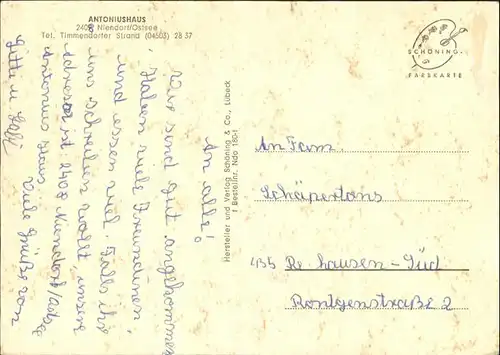 ANTONIUSHAUS
2408 Niendorf/Ostsee
Tel. Timmendorfer Strand (04503) 28 37
SCHÖNING
FARBKARTE
Hersteller und Verlag Schöning & Co., Lübeck
/ Bestellnr. Ndo 180-1
An alle!
Wir sind gut angekommen
haben viele Freundinen
und essen viel. Falls ihr
uns schreiben wollt, unsere
Adresse ist 2408 Niendorf/Ostsee
Antonius Haus
Viele Grüße von
Gitte u
An Fam.
Schäpertons
435 Re-hausen-Süd
Röntgenstraße 2